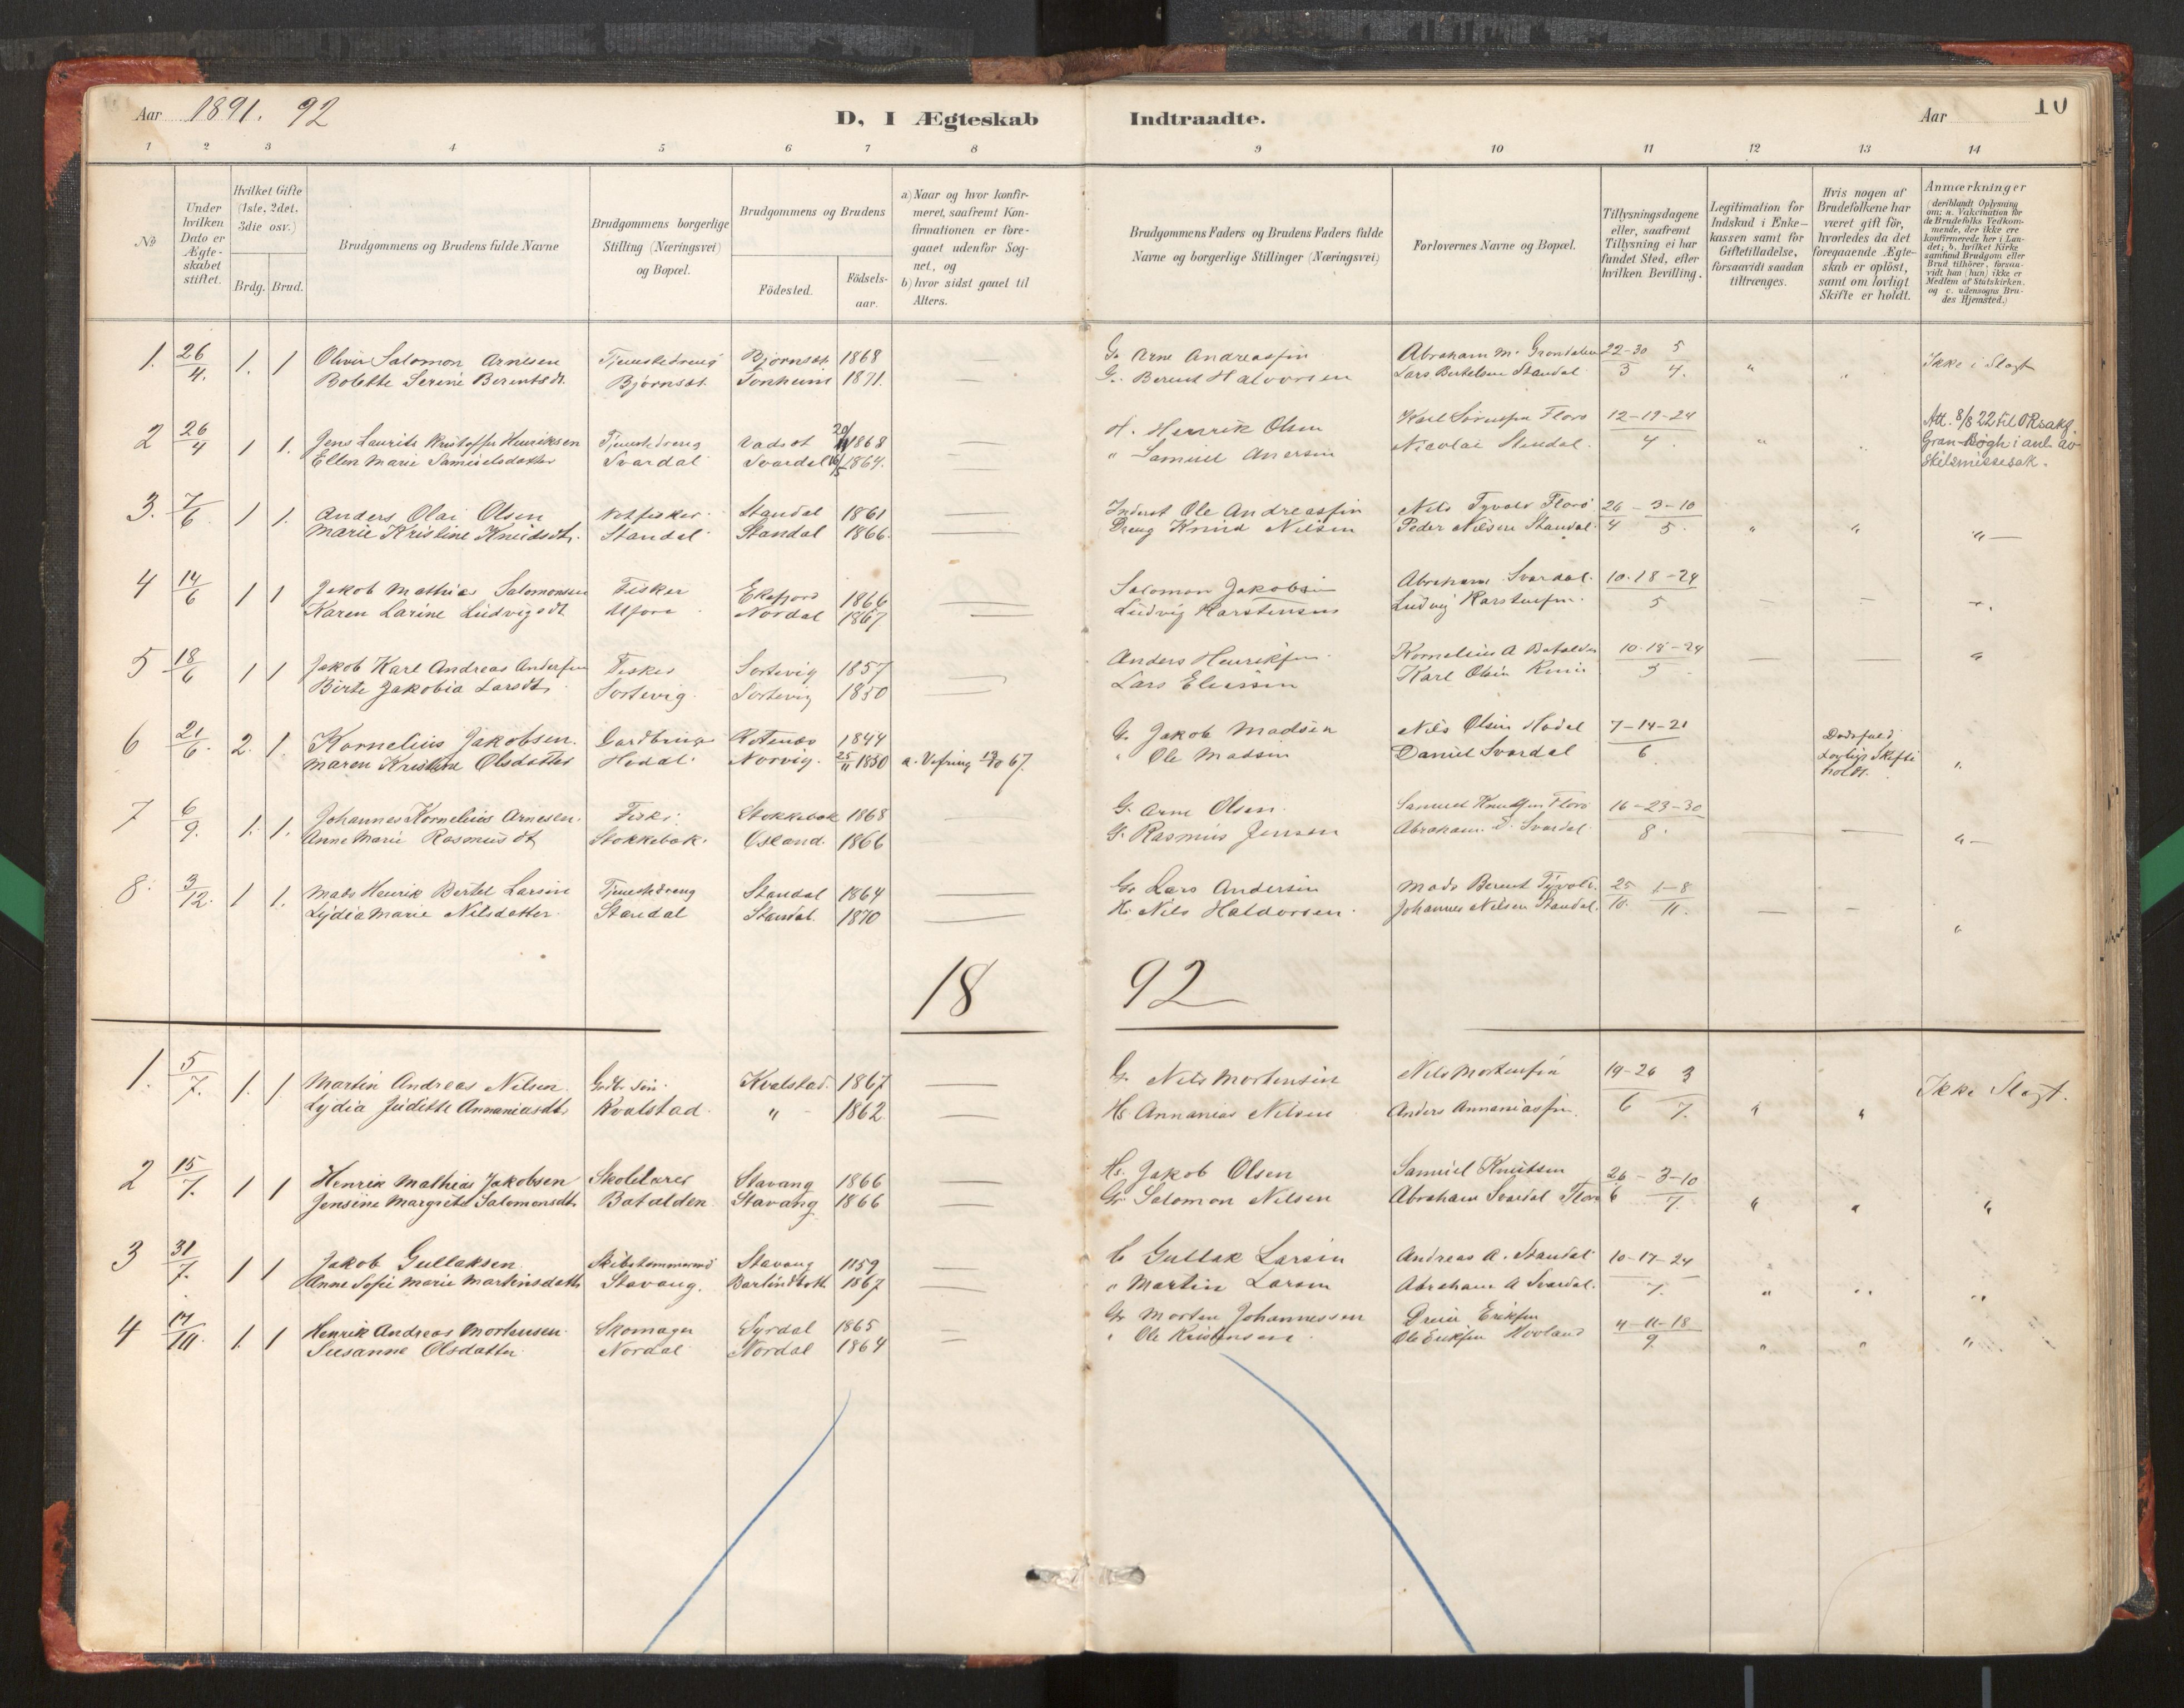 Aar 1891. 92 D, I Ægteskab Indtraadte. Aar 10
1 2 3 4 5 6 7 8 9 10 11 12 13 14
No
Under hvilken Dato er Ægte-skabet stiftet.
Hvilket Gifte (1ste, 2det, 3die osv.)
Brdg. Brud.
Brudgommens og Brudens fulde Navne
Brudgommens borgerlige Stilling (Næringsvei) og Bopæl.
Brudgommens og Brudens
Födested. Födsels-aar.
a) Naar og hvor konfir-meret, saafremt Kon-firmationen er fore-gaaet udenfor Sog-net, og
b) hvor sidst gaaet til Alters.
Brudgommens Faders og Brudens Faders fulde Navne og borgerlige Stillinger (Næringsvei)
Forlovernes Navne og Bopæl.
Tillysningsdagene eller, saafremt Tillysning ei har fundet Sted, efter hvilken Bevilling.
Legitimation for Indskud i Enke-kassen samt for Giftetilladelse, forsaavidt saadan tiltrænges.
Hvis nogen af Brudefolkene har været gift för, hvorledes da det foregaaende Ægte-skab er oplöst, samt om lovligt Skifte er holdt.
Anmærkninger (deriblandt Oplysning om: a. Vakcination for de Brudefolks Vedkom-mende, der ikke ere konfirmerede her i Lan-det; b. hvilket Kirke samfund Brudgom eller Brud tilhörer, forsaa-vidt han (hun) ikke er Medlem af Statskirken. og c. udensogns Bru-des Hjemsted.)
1. 26/4. 1. 1 Oliver Salomon Arnesen Tjenestedreng Bjørnset 1868 — G. Arne Andreassen Abraham M. Grøndalen 22-30/3 5/4. " " Ikke i Slægt
Bolette Serine Berentsdt. Bjørnset. 1871. — G. Berent Halvorsen Lars Bertelsen Standal
2 26/4 1 1. Jens Laurits Kristoffer Henriksen Tjenestedreng Vadset 1868 — H. Henrik Olsen Karl Sørensen Florø 12-19-24/4 " " Att. 8/8 22 til ORsakf.
Ellen Marie Samuelsdatter Svardal Svardal 1864. — " Samuel Andersen Nicolai Standal. Gran-Bøgh i anl. av
skilsmissesak.
3. 7/6 1 1. Anders Olai Olsen Notfisker. Standal 1861 — Inderst Ole Andreassen Nils Tyvold Florø 26/4 - 3-10/5. " " " —
Marie Kristine Knudsdt. Standal Standal 1866. — Dreng Knud Nilsen Peder Nilsen Standal.
4 14/6 1 1 Jakob Mathias Salomonsen Fisker Eikefjord 1866 — Salomon Jakobsen Abraham Svardal. 10-18-24/5 — —
Karen Larine Ludvigsdt Ufore Nordal 1867 — Ludvig Karstensen Ludvig Karstensen.
5 18/6 1 1 Jakob Karl Andreas Andersen Fisker Sortevig 1857 Anders Henriksen. Kornelius A Batalden 10-18-24/5 — — "
Birte Jakobia Larsdt. Sortevig. Sortevig 1850 — Lars Eliassen Karl Olsen
6 21/6. 2. 1. Kornelius Jakobsen. Gardbruger 1844 G. Jakob Madsen Nils Olsen Hodal 7-14-21/6 Dødsfald
Maren Kristine Olsdatter Hodal. Norvig. 25/11 1850 a. Vefring 13/10 67. " Ole Madsen Daniel Svardal Lovligt Skifte
holdt. "
7 6/9. 1. 1. Johannes Kornelius Arnesen. Fisker. Stokkebak 1868 — G. Arne Olsen. Samuel Knudsen Florø 16-23-30/8. — — " —
Anne Marie Rasmusdt. Stokkebak. Osland. 1866 — G. Rasmus Jensen Abraham S. Svardal
8. 3/12. 1 1. Mads Henrik Bertel Larsen Tjenestedreng Standal 1864 — G. Lars Andersen Mads Berent Tyvold. 25/10. 1-8/11. — — "
Lydia Marie Nilsdatter. Standal Standal 1870 — H. Nils Haldorsen. Johannes Nilsen Standal.
18 92
1. 5/7. 1. 1 Martin Andreas Nilsen. Grdbr. Søn. Kvalstad. 1867 — G. Nils Mortensen Nils Mortensen 19-26/6 3/7. " " Ikke Slægt.
Lydia Judithe Annaniasdt. Kvalstad. " 1862 — Hs Annanias Nilsen Anders Annaniassen.
2 15/7. 1 1 Henrik Mathias Jakobsen Skolelærer Stavang 1866 — Hs. Jakob Olsen Samuel Knutsen 26/6 - 3-10/7. " " "
Jensine Margrete Salomonsdt. Batalden Stavang 1866 — Gr. Salomon Nilsen Abraham Svardal Florø
3 31/7. 1 1 Jakob Gullaksen Skibstømmermd Stavang 1859 — G Gullak Larsen Andreas A. Standal 10-17-24/7. " " "
Anne Sofie Marie Martinsdatter Stavang. Barlindbotn 1867 — " Martin Larsen Abraham A Svardal.
4 14/10. 1. 1 Henrik Andreas Mortensen. Skomager Syrdal 1865 — Gr Morten Johannessen Dreier Eriksen 4-11-18/9. " " "
Susanne Olsdatter. Nordal Nordal 1864 — " Ole Kristensen. Ole Eriksen Hovland